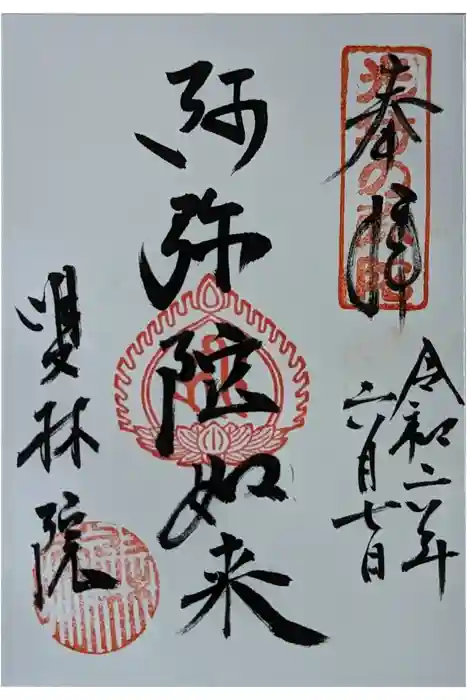 奉拝
令和二年
六月七日
阿弥陀如来
雙林院